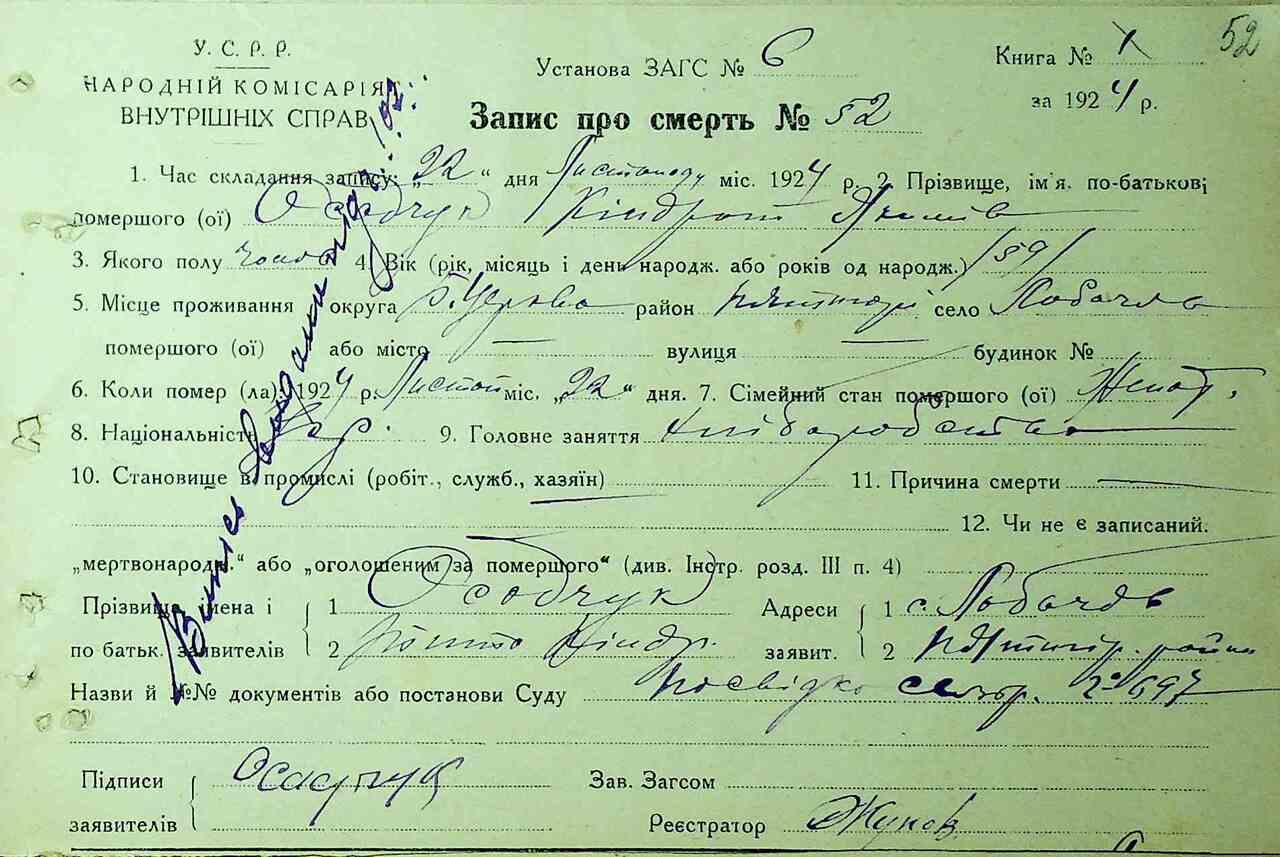 52
У. С. Р. Р.
НАРОДНІЙ КОМІСАРІЯТ
ВНУТРІШНІХ СПРАВ
Установа ЗАГС № 6
Книга № 1
за 1924 р.
Запис про смерть № 52
1. Час складання запису: „22“ дня Листопаду міс. 1924 р. 2. Прізвище, ім'я. по-батькові
помершого (ої) Осодчук Кіндрат Якимів
3. Якого полу 4. Вік (рік, місяць і день народж. або років од народж.) /59/
5. Місце проживання округа б. Церква район село Лобачів
помершого (ої) або місто — вулиця — будинок №
6. Коли помер (ла): 1924 р. Листоп міс. „22“ дня. 7. Сімейний стан помершого (ої) Женат.
8. Національність Укр. 9. Головне заняття хліборобство
10. Становище в промислі (робіт., служб., хазяїн) 11. Причина смерти —
12. Чи не є записаний.
„мертвонародж.“ або „оголошеним за помершого“ (див. Інстр. розд. III п. 4)
Прізвище імена і 1 Осодчук Адреси 1 с. Лобачів
по батьк. заявителів 2 Кіндр. заявит. 2 район
Назви й №№ документів або постанови Суду посвідка сельр. № 697
Підписи Осадчук Зав. Загсом
заявителів Реєстратор Жуков
Витяг